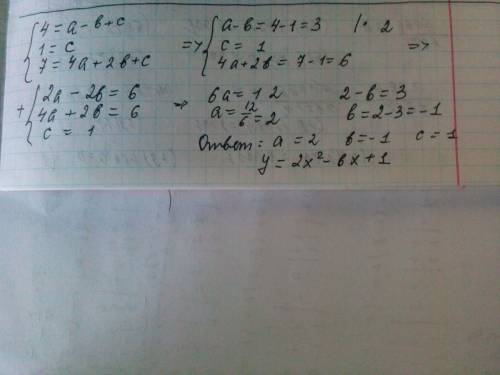 4 = a - b + c
1 = c
7 = 4a + 2b + c
=>
a - b = 4 - 1 = 3 |· 2
c = 1
4a + 2b = 7 - 1 = 6
=>
+
2a - 2b = 6
4a + 2b = 6
c = 1
=>
6a = 12
a = 12/6 = 2
2 - b = 3
b = 2 - 3 = -1
Ответ: a = 2 b = -1 c = 1
y = 2x² - bx + 1